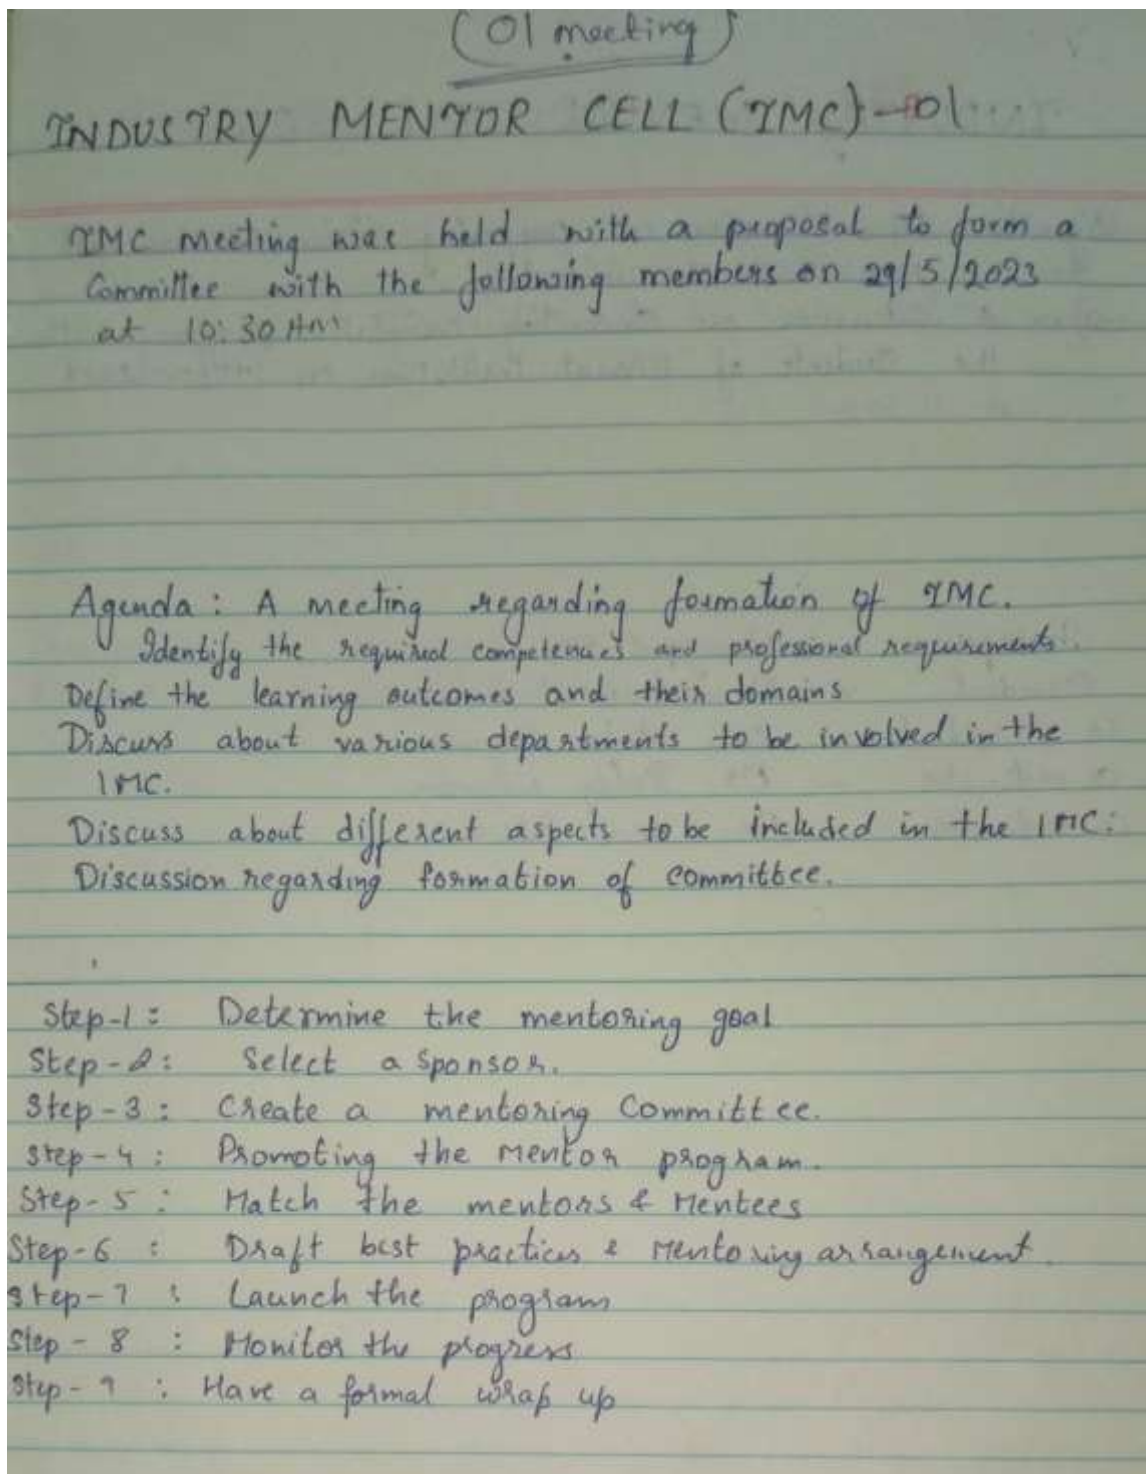 (01 meeting)
INDUSTRY MENTOR CELL (IMC)-01....
IMC meeting was held with a proposal to form a
Committee with the following members on 29/5/2023
at 10:30 Am
Agenda: A meeting regarding formation of IMC.
Identify the required competencies and professional requirements.
Define the learning outcomes and their domains
Discuss about various departments to be involved in the
IMC.
Discuss about different aspects to be included in the IMC.
Discussion regarding formation of committee.
Step-1: Determine the mentoring goal
Step-2: Select a sponsor.
Step-3: Create a mentoring Committee.
Step-4: Promoting the Mentor program.
Step-5: Match the mentors & Mentees
Step-6: Draft best practices & Mentoring arrangement.
Step-7: Launch the program
Step-8: Monitor the progress
Step-9: Have a formal wrap up